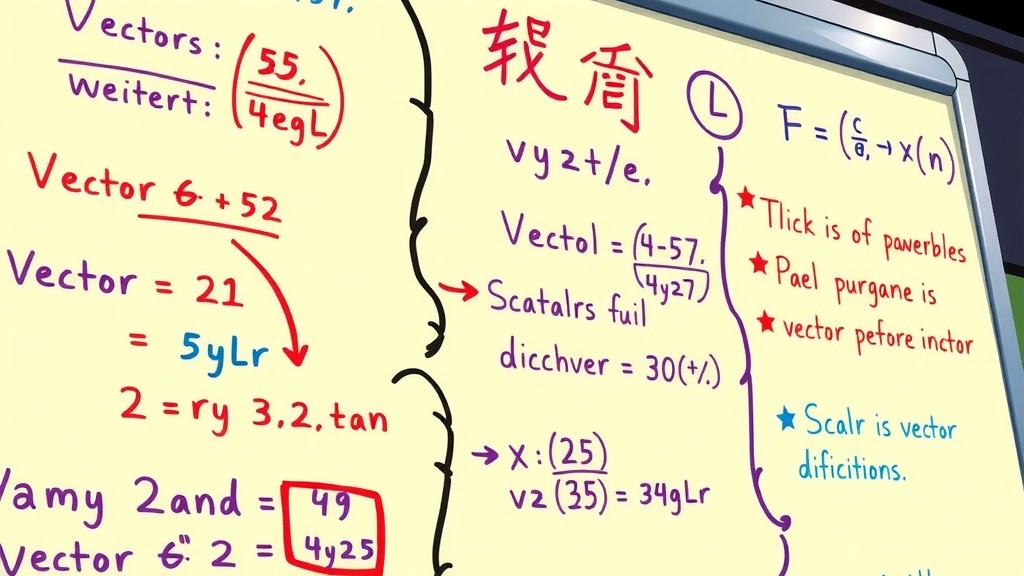 Vectors:
weitert:
(55. / 4egL)
Vector 6 + 52
Vector = 21
= 5yLr
2 = ry 3.2.tan
Yamy 2and = 49
Vector 6" 2 = 4y25
L
vyzt/e.
Vectol = (4-57.
4y27)
Scatalrs fuil
dicchver = 30(+/.)
→ x: (25)
vz (35) = 34gLr
F = ( → x(n)
★ Tlick is of pawerbles
★ Pael purgane is
★ vector pefore inctor
★ Scalr is vector
dificitions.